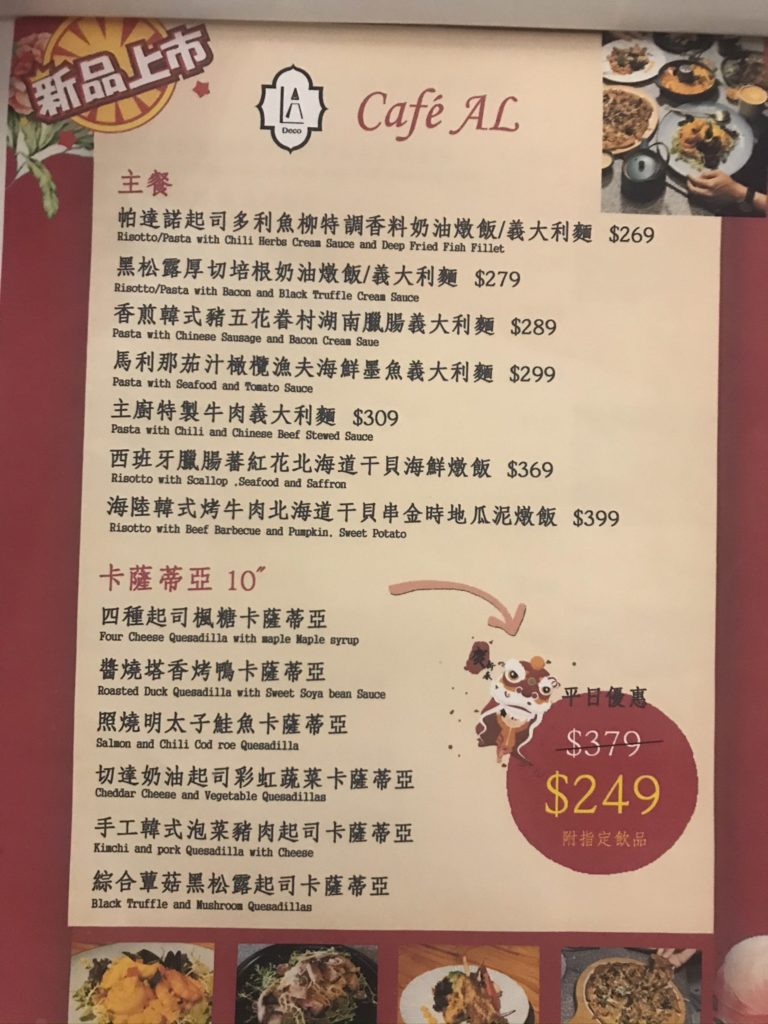 新品上市
LA
Deco
Café AL
主餐
帕達諾起司多利魚柳特調香料奶油燉飯/義大利麵 $269
Risotto/Pasta with Chili Herbs Cream Sauce and Deep Fried Fish Fillet
黑松露厚切培根奶油燉飯/義大利麵 $279
Risotto/Pasta with Bacon and Black Truffle Cream Sauce
香煎韓式豬五花眷村湖南臘腸義大利麵 $289
Pasta with Chinese Sausage and Bacon Cream Saue
馬利那茄汁橄欖漁夫海鮮墨魚義大利麵 $299
Pasta with Seafood and Tomato Sauce
主廚特製牛肉義大利麵 $309
Pasta with Chili and Chinese Beef Stewed Sauce
西班牙臘腸蕃紅花北海道干貝海鮮燉飯 $369
Risotto with Scallop ,Seafood and Saffron
海陸韓式烤牛肉北海道干貝串金時地瓜泥燉飯 $399
Risotto with Beef Barbecue and Pumpkin, Sweet Potato
卡薩蒂亞 10″
四種起司楓糖卡薩蒂亞
Four Cheese Quesadilla with maple Maple syrup
醬燒塔香烤鴨卡薩蒂亞
Roasted Duck Quesadilla with Sweet Soya bean Sauce
照燒明太子鮭魚卡薩蒂亞
Salmon and Chili Cod roe Quesadilla
切達奶油起司彩虹蔬菜卡薩蒂亞
Cheddar Cheese and Vegetable Quesadillas
手工韓式泡菜豬肉起司卡薩蒂亞
Kimchi and pork Quesadilla with Cheese
綜合蕈菇黑松露起司卡薩蒂亞
Black Truffle and Mushroom Quesadillas
賀
平日優惠
$379
$249
附指定飲品